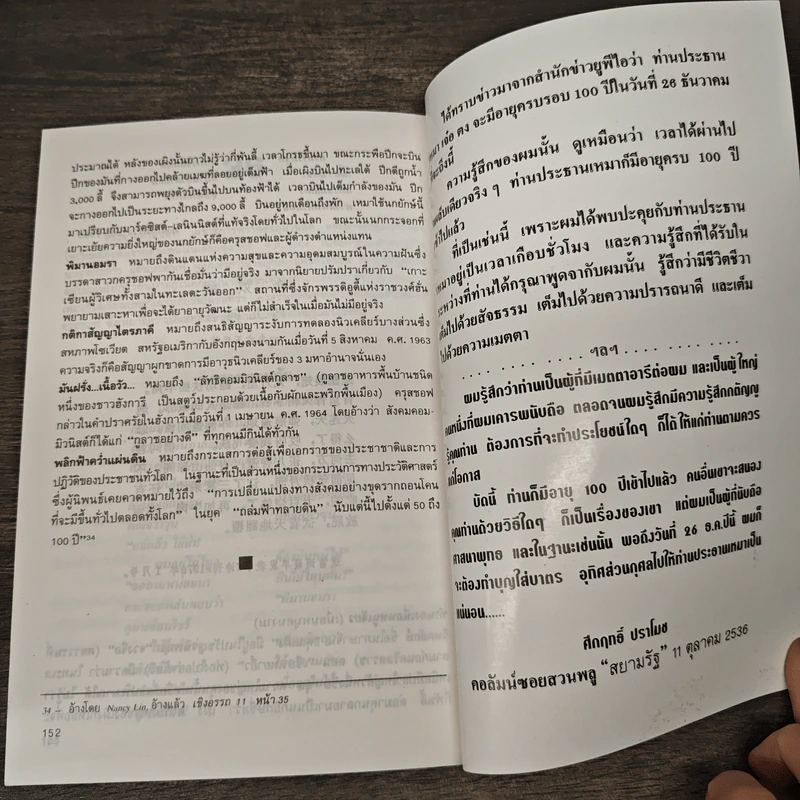 ประมาณได้ หลังของเผิงนั้นยาวไม่รู้ว่ากี่พันลี้ เวลาโกรธขึ้นมา ขณะกระพือปีกจะบิน
ปีกของมันที่กางออกไปคล้ายเมฆที่ลอยอยู่เต็มฟ้า เมื่อเผิงบินไปทะเลใต้ ปีกตีถูกน้ำ
3,000 ลี้ จึงสามารถพยุงตัวบินขึ้นไปบนท้องฟ้าได้ เวลาบินไปเต็มกำลังของมัน ปีก
จะกางออกไปเป็นระยะทางไกลถึง 9,000 ลี้ บินอยู่หกเดือนถึงพัก เหมาใช้นกยักษ์นี้
มาเปรียบกับมาร์คซิสต์-เลนินนิสต์ที่แท้จริงโดยทั่วไปในโลก ขณะนั้นนกกระจอกที่
เยาะเย้ยความยิ่งใหญ่ของนกยักษ์ก็คือครูสชอฟและผู้ดำรงตำแหน่งแทน
พิมานอมรา หมายถึงดินแดนแห่งความสุขและความอุดมสมบูรณ์ในความฝันซึ่ง
บรรดาสาวกครูสชอฟพากันเชื่อมั่นว่ามีอยู่จริง มาจากนิยายปรัมปราเกี่ยวกับ "เกาะ
เซียนผู้วิเศษทั้งสามในทะเลตะวันออก" สถานที่ซึ่งจักรพรรดิอู่ตี้แห่งราชวงศ์ฮั่น
พยายามเสาะหาเพื่อจะได้ยาอายุวัฒนะ แต่ก็ไม่สำเร็จในเมื่อมันไม่มีอยู่จริง
กติกาสัญญาไตรภาคี หมายถึงสนธิสัญญาระงับการทดลองนิวเคลียร์บางส่วนซึ่ง
สหภาพโซเวียต สหรัฐอเมริกากับอังกฤษลงนามกันเมื่อวันที่ 5 สิงหาคม ค.ศ. 1963
ความจริงก็คือสัญญาผูกขาดการมีอาวุธนิวเคลียร์ของ 3 มหาอำนาจนั่นเอง
มันฝรั่ง...เนื้อวัว... หมายถึง "ลัทธิคอมมิวนิสต์กูลาช" (กูลาชอาหารพื้นบ้านชนิด
หนึ่งของชาวฮังการี เป็นสตูว์ประกอบด้วยเนื้อกับผักและพริกพื้นเมือง) ครุสชอฟ
กล่าวในคำปราศรัยในฮังการีเมื่อวันที่ 1 เมษายน ค.ศ. 1964 โดยอ้างว่า สังคมคอม-
มิวนิสต์ก็ได้แก่ "กูลาชอย่างดี" ที่ทุกคนมีกินได้ทั่วกัน
พลิกฟ้าคว่ำแผ่นดิน หมายถึงกระแสการต่อสู้เพื่อเอกราชของประชาชาติและการ
ปฏิวัติของประชาชนทั่วโลก ในฐานะที่เป็นส่วนหนึ่งของกระบวนการทางประวัติศาสตร์
ซึ่งผู้นิพนธ์เคยคาดหมายไว้ถึง "การเปลี่ยนแปลงทางสังคมอย่างขุดรากถอนโคน
ที่จะมีขึ้นทั่วไปตลอดทั้งโลก" ในยุค "ถล่มฟ้าทลายดิน" นับแต่นี้ไปตั้งแต่ 50 ถึง
100 ปี"34
34 – อ้างโดย Nancy Lin, อ้างแล้ว เชิงอรรถ 11 หน้า 35
152
ได้ทราบข่าวมาจากสำนักข่าวยูพีไอว่า ท่านประธาน
เหมา เจ๋อ ตง จะมีอายุครบรอบ 100 ปีในวันที่ 26 ธันวาคม
ที่จะถึงนี้
ความรู้สึกของผมนั้น ดูเหมือนว่า เวลาได้ผ่านไป
เดียวจริง ๆ ท่านประธานเหมาก็มีอายุครบ 100 ปี
เข้าไปแล้ว
ที่เป็นเช่นนี้ เพราะผมได้พบปะคุยกับท่านประธาน
เหมาอยู่เป็นเวลาเกือบชั่วโมง และความรู้สึกที่ได้รับใน
ระหว่างที่ท่านได้กรุณาพูดจากับผมนั้น รู้สึกว่ามีชีวิตชีวา
เต็มไปด้วยสัจธรรม เต็มไปด้วยความปรารถนาดี และเต็ม
ไปด้วยความเมตตา
. . . . . . . . . . . . ฯลฯ . . . . . . . . . . . .
ผมรู้สึกว่าท่านเป็นผู้ที่มีเมตตาอารีต่อผม และเป็นผู้ใหญ่
คนหนึ่งที่ผมเคารพนับถือ ตลอดจนผมรู้สึกมีความรู้สึกกตัญญู
รู้คุณท่าน ต้องการที่จะทำประโยชน์ใดๆ ก็ได้ ให้แก่ท่านตามควร
แก่โอกาส
บัดนี้ ท่านก็มีอายุ 100 ปีเข้าไปแล้ว คนอื่นเขาจะสนอง
คุณท่านด้วยวิธีใดๆ ก็เป็นเรื่องของเขา แต่ผมเป็นผู้ที่นับถือ
ศาสนาพุทธ และในฐานะเช่นนั้น พอถึงวันที่ 26 ธ.ค.ปีนี้ ผมก็
จะต้องทำบุญใส่บาตร อุทิศส่วนกุศลไปให้ท่านประธานเหมาเป็น
แน่นอน......
คึกฤทธิ์ ปราโมช
คอลัมน์ซอยสวนพลู "สยามรัฐ" 11 ตุลาคม 2536